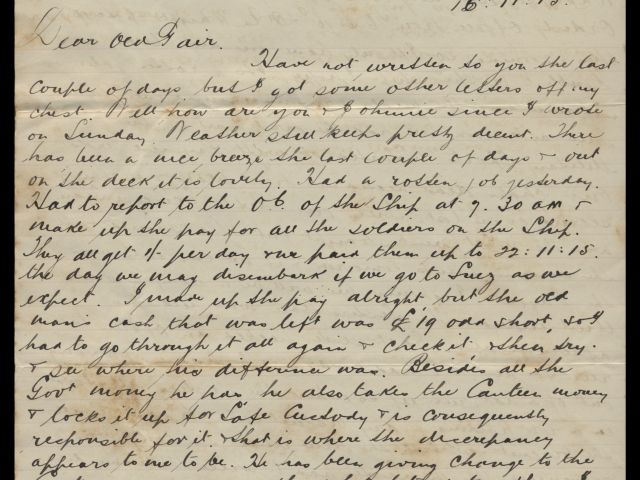 16. 11. 15.
Dear Old Fair.
Have not written to you the last
couple of days but I got some other letters off my
chest. Well how are you & Johnnie since I wrote
on Sunday. Weather still keeps pretty decent. There
has been a nice breeze the last couple of days & out
on the deck it is lovely. Had a rotten job yesterday.
Had to report to the O.C. of the Ship at 9.30 am &
make up the pay for all the soldiers on the Ship.
They all get 1/- per day & we paid them up to 22:11:15.
the day we may disembark if we go to Suez as we
expect. I made up the pay alright, but the old
man's cash that was left was £19 odd short, so I
had to go through it all again & check it & then try
& see where his difference was. Besides all the
Govt money he has he also takes the Canteen money
& locks it up for Safe Custody & is consequently
responsible for it & that is where the discrepancy
appears to me to be. He has been giving change to the